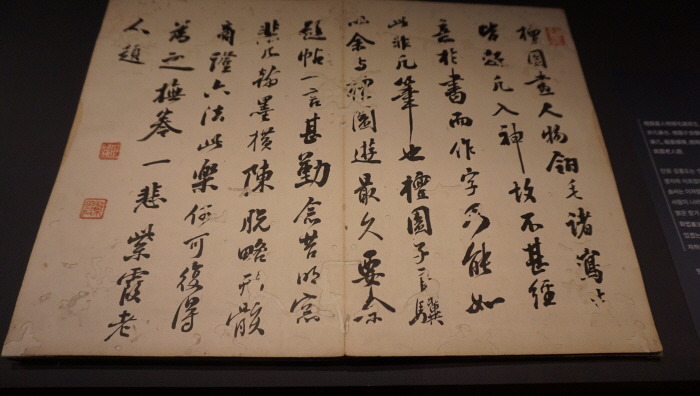 檀園畫人物翎毛諸寫生
皆超凡入神故不甚經
意於書而作字乃能如
此非凡筆也檀園子良驥
以余与檀園遊最久要余
題帖一言甚勤念昔明窓
棐几翰墨橫陳脫略形骸
商證六法此樂何可復得
為之撫卷一悲紫霞老
人題